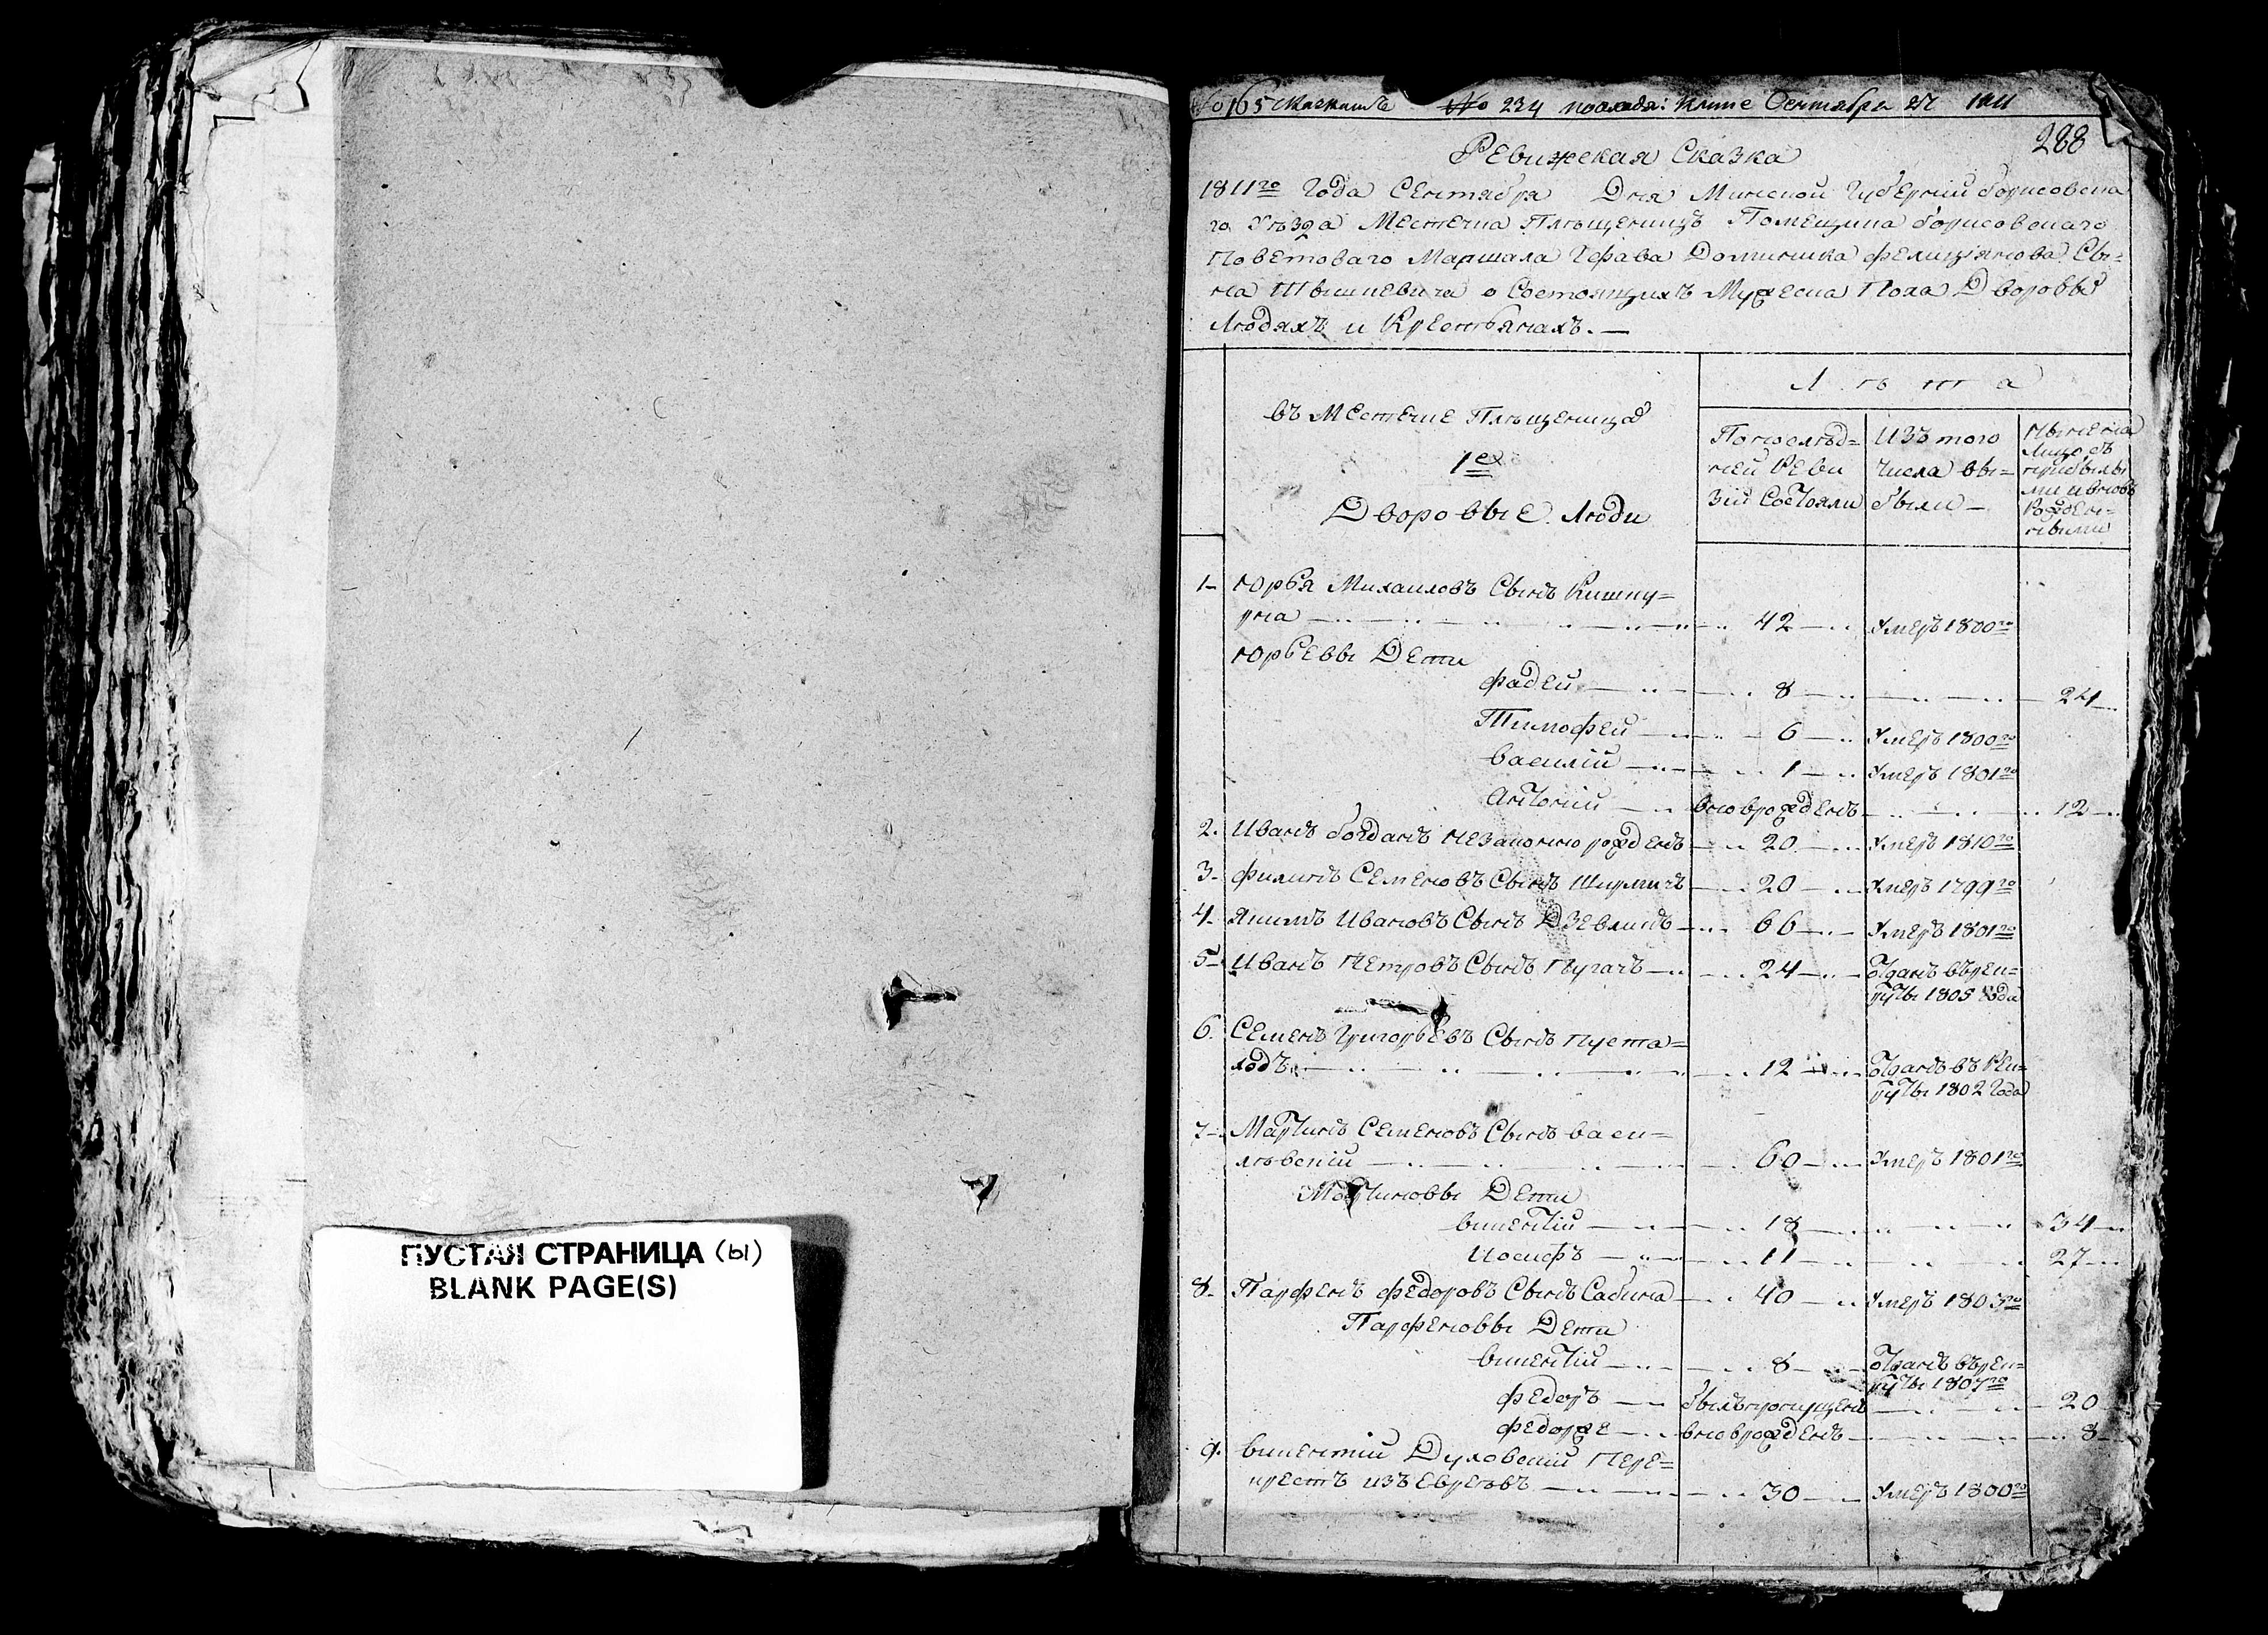 ПУСТАЯ СТРАНИЦА (ы)
BLANK PAGE(S)
№ 165 № 234 Сентября 1811
288
Ревижская Сказка
1811го Года Сентября Дня Минской Губернии борисовска
го Уъзда Местечка Плъщеницъ Помещика борисовскаго
Поветоваго Маршала Графа Доминика фелицiянова Сы=
на Тышкевича о Состоящихъ Мужеска Пола Дворовы
Людяхъ и Крестьянахъ. —
Лъта
въ Местечке Плъщеницах
1е
Дворовые Люди
По послъд=
ней Реви
зiи Состояли
Изъ того
числа вы=
были —
Ныне на
лицо съ
прибылы
ми и вновь
Рожден=
ными
1 Юрья Михаиловъ Сынъ Кишку=
рна 42 Умеръ 1800го
Юрьевы Дети
фадей 8 24
Тимофей 6 Умеръ 1800го
василiй 1 Умеръ 1801го
Антонiй вноврожденъ 12
2. Иванъ богданъ незаконно рожденъ 20 Умеръ 1810го
3. филипъ Семеновъ Сынъ 20 Умеръ 1799го
4. Якимъ Ивановъ Сынъ 66 Умеръ 1801го
5 Иванъ Петровъ Сынъ Пугачъ 24 Отданъ въ рек=
руты 1805 Года
6. Семенъ Григорьевъ Сынъ Пуста=
ходъ 12 Отданъ въ Рек=
руты 1802 Года
7 Мартинъ Семеновъ Сынъ васи=
левскiй 60 Умеръ 1801го
Мартиновы Дети
викентiй 18 34
Иосифъ 11 27
8. Парфенъ федоровъ Сынъ Сабина 40 Умеръ 1803го
Парфеновы Дети
викентiй 8 Отданъ въ рек=
руты 1807го
федоръ былъ пропущенъ 20
вноврожденъ 8
9. викентiй Духовскiй Пере=
крестъ изъ Евреовъ 30 Умеръ 1800го